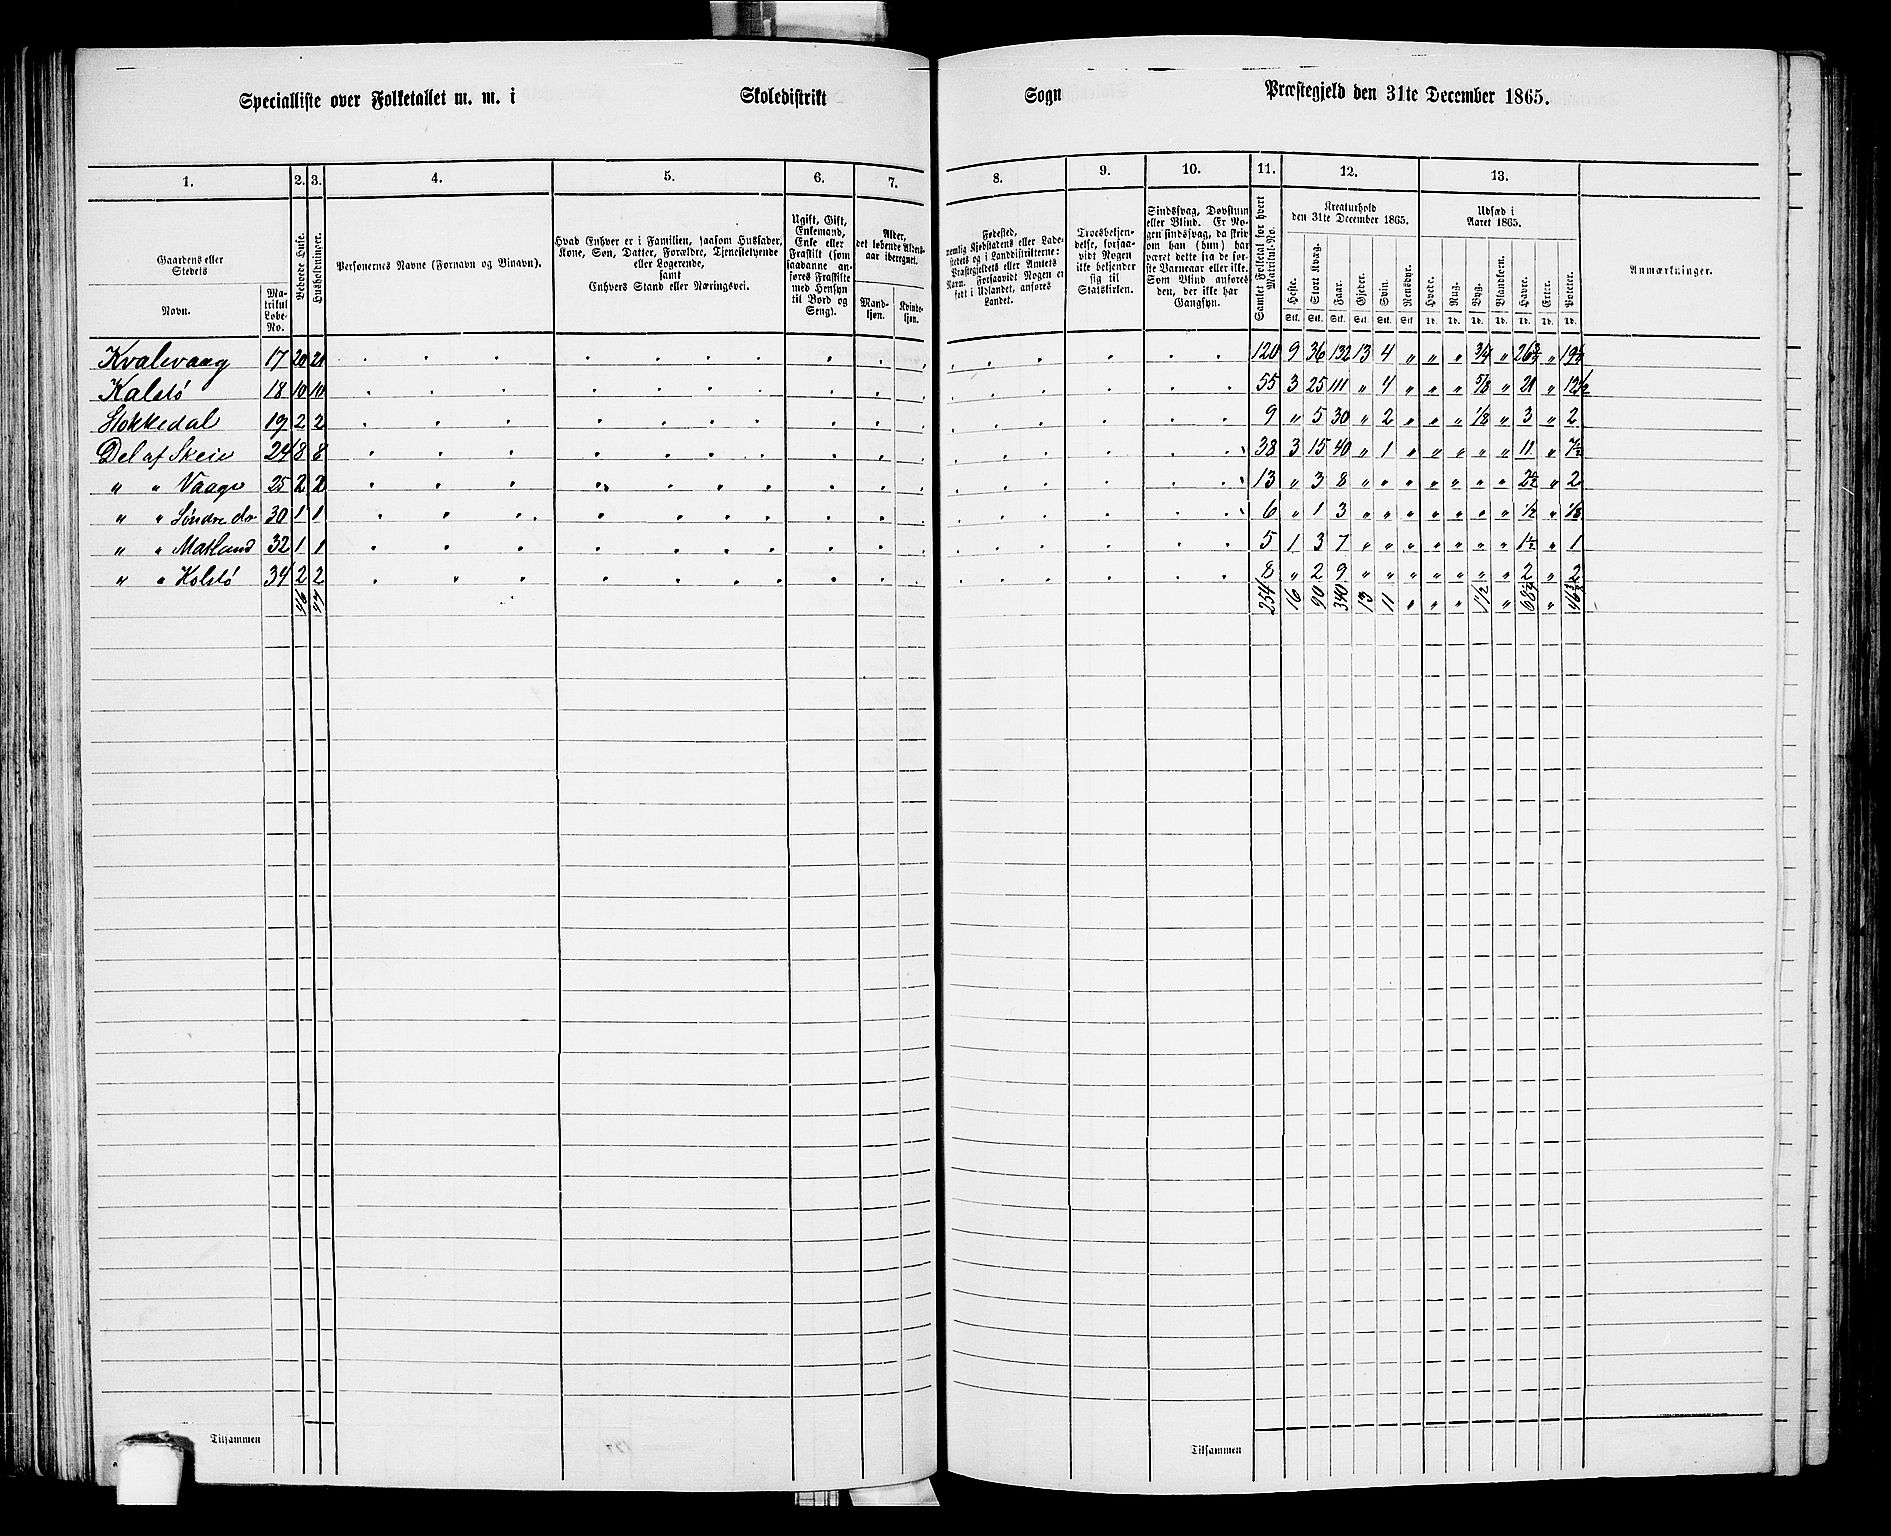 Specialliste over Folketallet m. m. i Skoledistrikt Sogn Præstegjeld den 31te December 1865.
1. 2. 3. 4. 5. 6. 7. 8. 9. 10. 11. 12. 13.
Gaardens eller Stedets
Navn.
Matrikul Løbe-No.
Beboede Huse.
Husholdninger.
Personernes Navne (Fornavn og Binavn).
Hvad Enhver er i Familien, saasom Husfader, Kone, Søn, Datter, Forældre, Tjenestetyende eller Logerende,
samt
Enhvers Stand eller Næringsvei.
Ugift, Gift, Enkemand, Enke eller Fraskilt (som saadanne anføres Fraskilte med Hensyn til Bord og Seng).
Alder, det løbende Alders-aar iberegnet.
Mand-kjøn.
Kvinde-kjøn.
Fødested,
nemlig Kjøbstadens eller Ladestedets og i Landdistrikterne: Præstegjeldets eller Amtets Navn. Forsaavidt Nogen er født i Udlandet, anføres Landet.
Troesbekjendelse, forsaavidt Nogen ikke bekjender sig til Statskirken.
Sindssvag, Døvstum eller Blind. Er Nogen sindssvag, da skrives om han (hun) har været dette fra de første Barneaar eller ikke. Som Blind anføres den, der ikke har Gangsyn.
Samlet Folketal for hvert Matrikul-No.
Kreaturhold
den 31te December 1865.
Heste. Stort Kvæg. Faar. Gjeder. Svin. Rensdyr.
Stk. Stk. Stk. Stk. Stk. Stk.
Udsæd i
Aaret 1865.
Hvede. Rug. Byg. Blandkorn. Havre. Erter. Poteter.
Td. Td. Td. Td. Td. Td. Td.
Anmærkninger.
Kvalevaag 17 20 21 120 9 36 132 13 4 " " " 3/4 " 26 3/4 "
Kalstø 18 10 10 55 3 25 111 " 4 " " " 5/8 " 21 " 12 1/2
Stokkedal 19 2 2 9 " 5 30 " 2 " " " 1/8 " 3 " 2
Del af Skeie 24 8 8 38 3 15 40 " 1 " " " " " 11 " 7 1/2
" " Vaage 25 2 2 13 " 3 8 " " " " " " " 2 1/2 " 2
" " Søndre do 30 1 1 6 " 1 3 " " " " " " " 1/2 "
" " Matland 32 1 1 5 1 3 7 " " " " " " " 1 1/2 " 1
" " Kolstø 34 2 2 8 " 2 9 " " " " " " " 2 " 2
46 47 254 16 90 340 13 11 " " " 1 1/2 " "
Tilsammen
Tilsammen